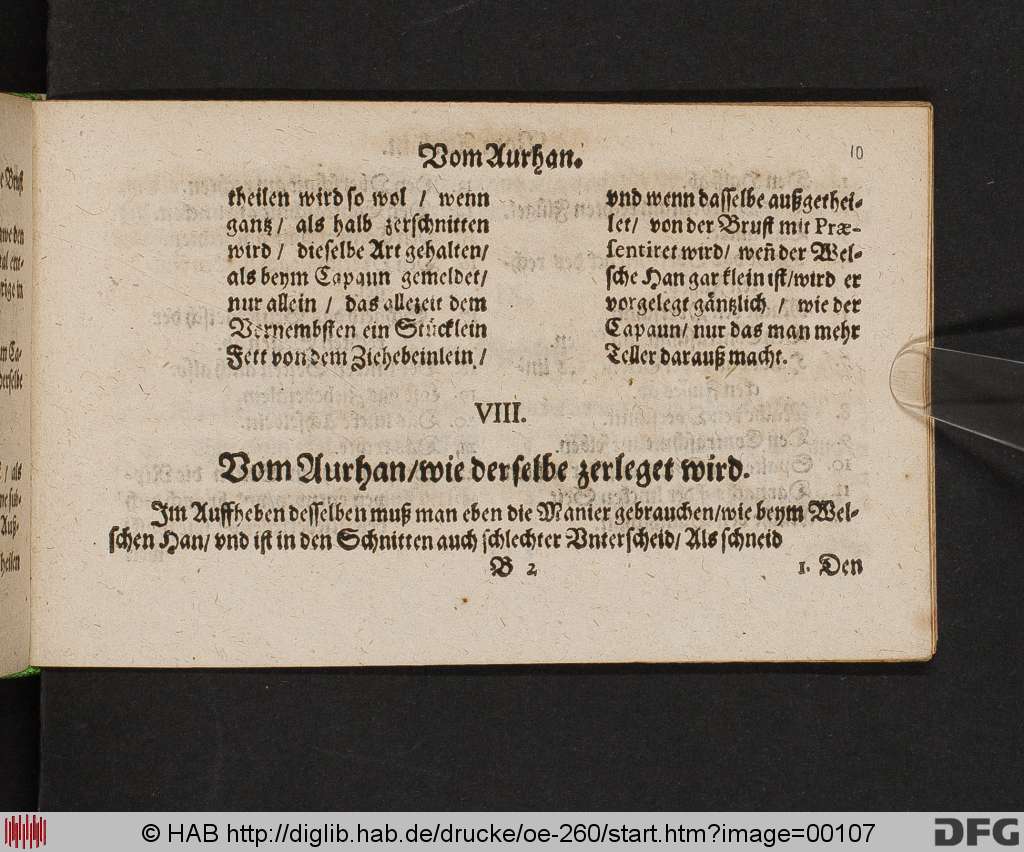 Vom Aurhan.
10
theilen wird so wol / wenn
gantz / als halb zerschnitten
wird / dieselbe Art gehalten /
als beym Capaun gemeldet /
nur allein / das allezeit dem
Vernembsten ein Stücklein
Fett von dem Ziehebeinlein /
vnd wenn dasselbe außgethei-
let / von der Brust mit Præ-
sentiret wird / weñ der Wel-
sche Han gar klein ist / wird er
vorgelegt gäntzlich / wie der
Capaun / nur das man mehr
Teller darauß macht.
VIII.
Vom Aurhan / wie derselbe zerleget wird.
Im Auffheben desselben muß man eben die Manier gebrauchen / wie beym Wel-
schen Han / vnd ist in den Schnitten auch schlechter Vnterscheid / Als schneid
B 2
1. Den
© HAB http://diglib.hab.de/drucke/oe-260/start.htm?image=00107
DFG